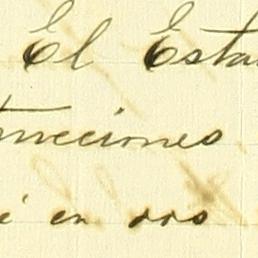 El Esta
trucciones
i en dos